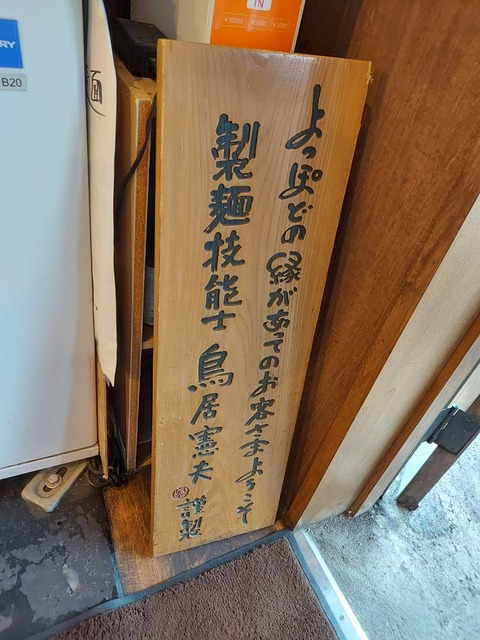 よっぽどの縁があってのお客さまようこそ
製麺技能士 鳥居憲夫
謹製
IN
¥10000 ¥5000
B20